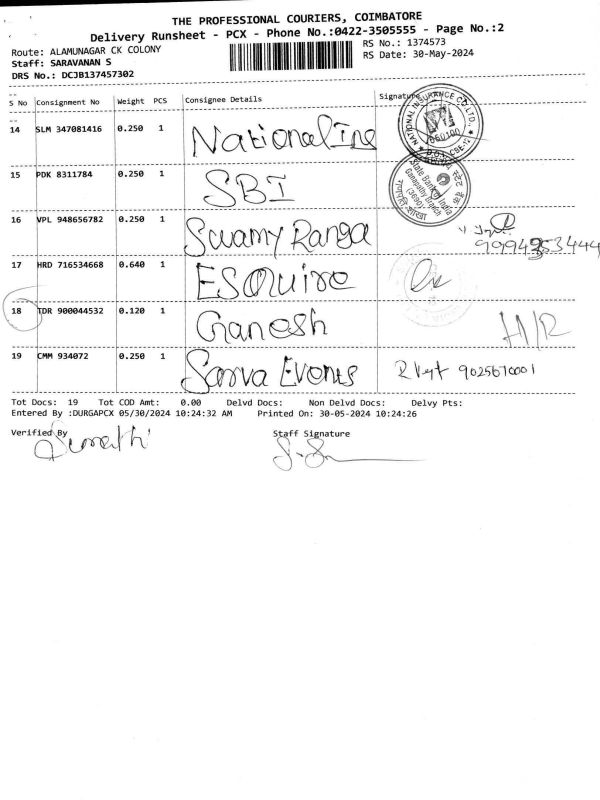 THE PROFESSIONAL COURIERS, COIMBATORE
Delivery Runsheet - PCX - Phone No.:0422-3505555 - Page No.:2
Route: ALAMUNAGAR CK COLONY
RS No.: 1374573
Staff: SARAVANAN S
RS Date: 30-May-2024
DRS No.: DCJB137457302
S No Consignment No Weight PCS Consignee Details Signature
14 SLM 347081416 0.250 1 National Ins
NATIONAL INSURANCE CO LTD.,
15 PDK 8311784 0.250 1 SBI
State Bank of India
Ganapathy Branch
16 VPL 948656782 0.250 1 Swamy Ranga
17 HRD 716534668 0.640 1 ESQuire
18 TDR 900044532 0.120 1 Ganesh H/R
19 CMM 934072 0.250 1 Sarva Events 9025670001
Tot Docs: 19 Tot COD Amt: 0.00 Delvd Docs: Non Delvd Docs: Delvy Pts:
Entered By :DURGAPCX 05/30/2024 10:24:32 AM Printed On: 30-05-2024 10:24:26
Verified By Staff Signature